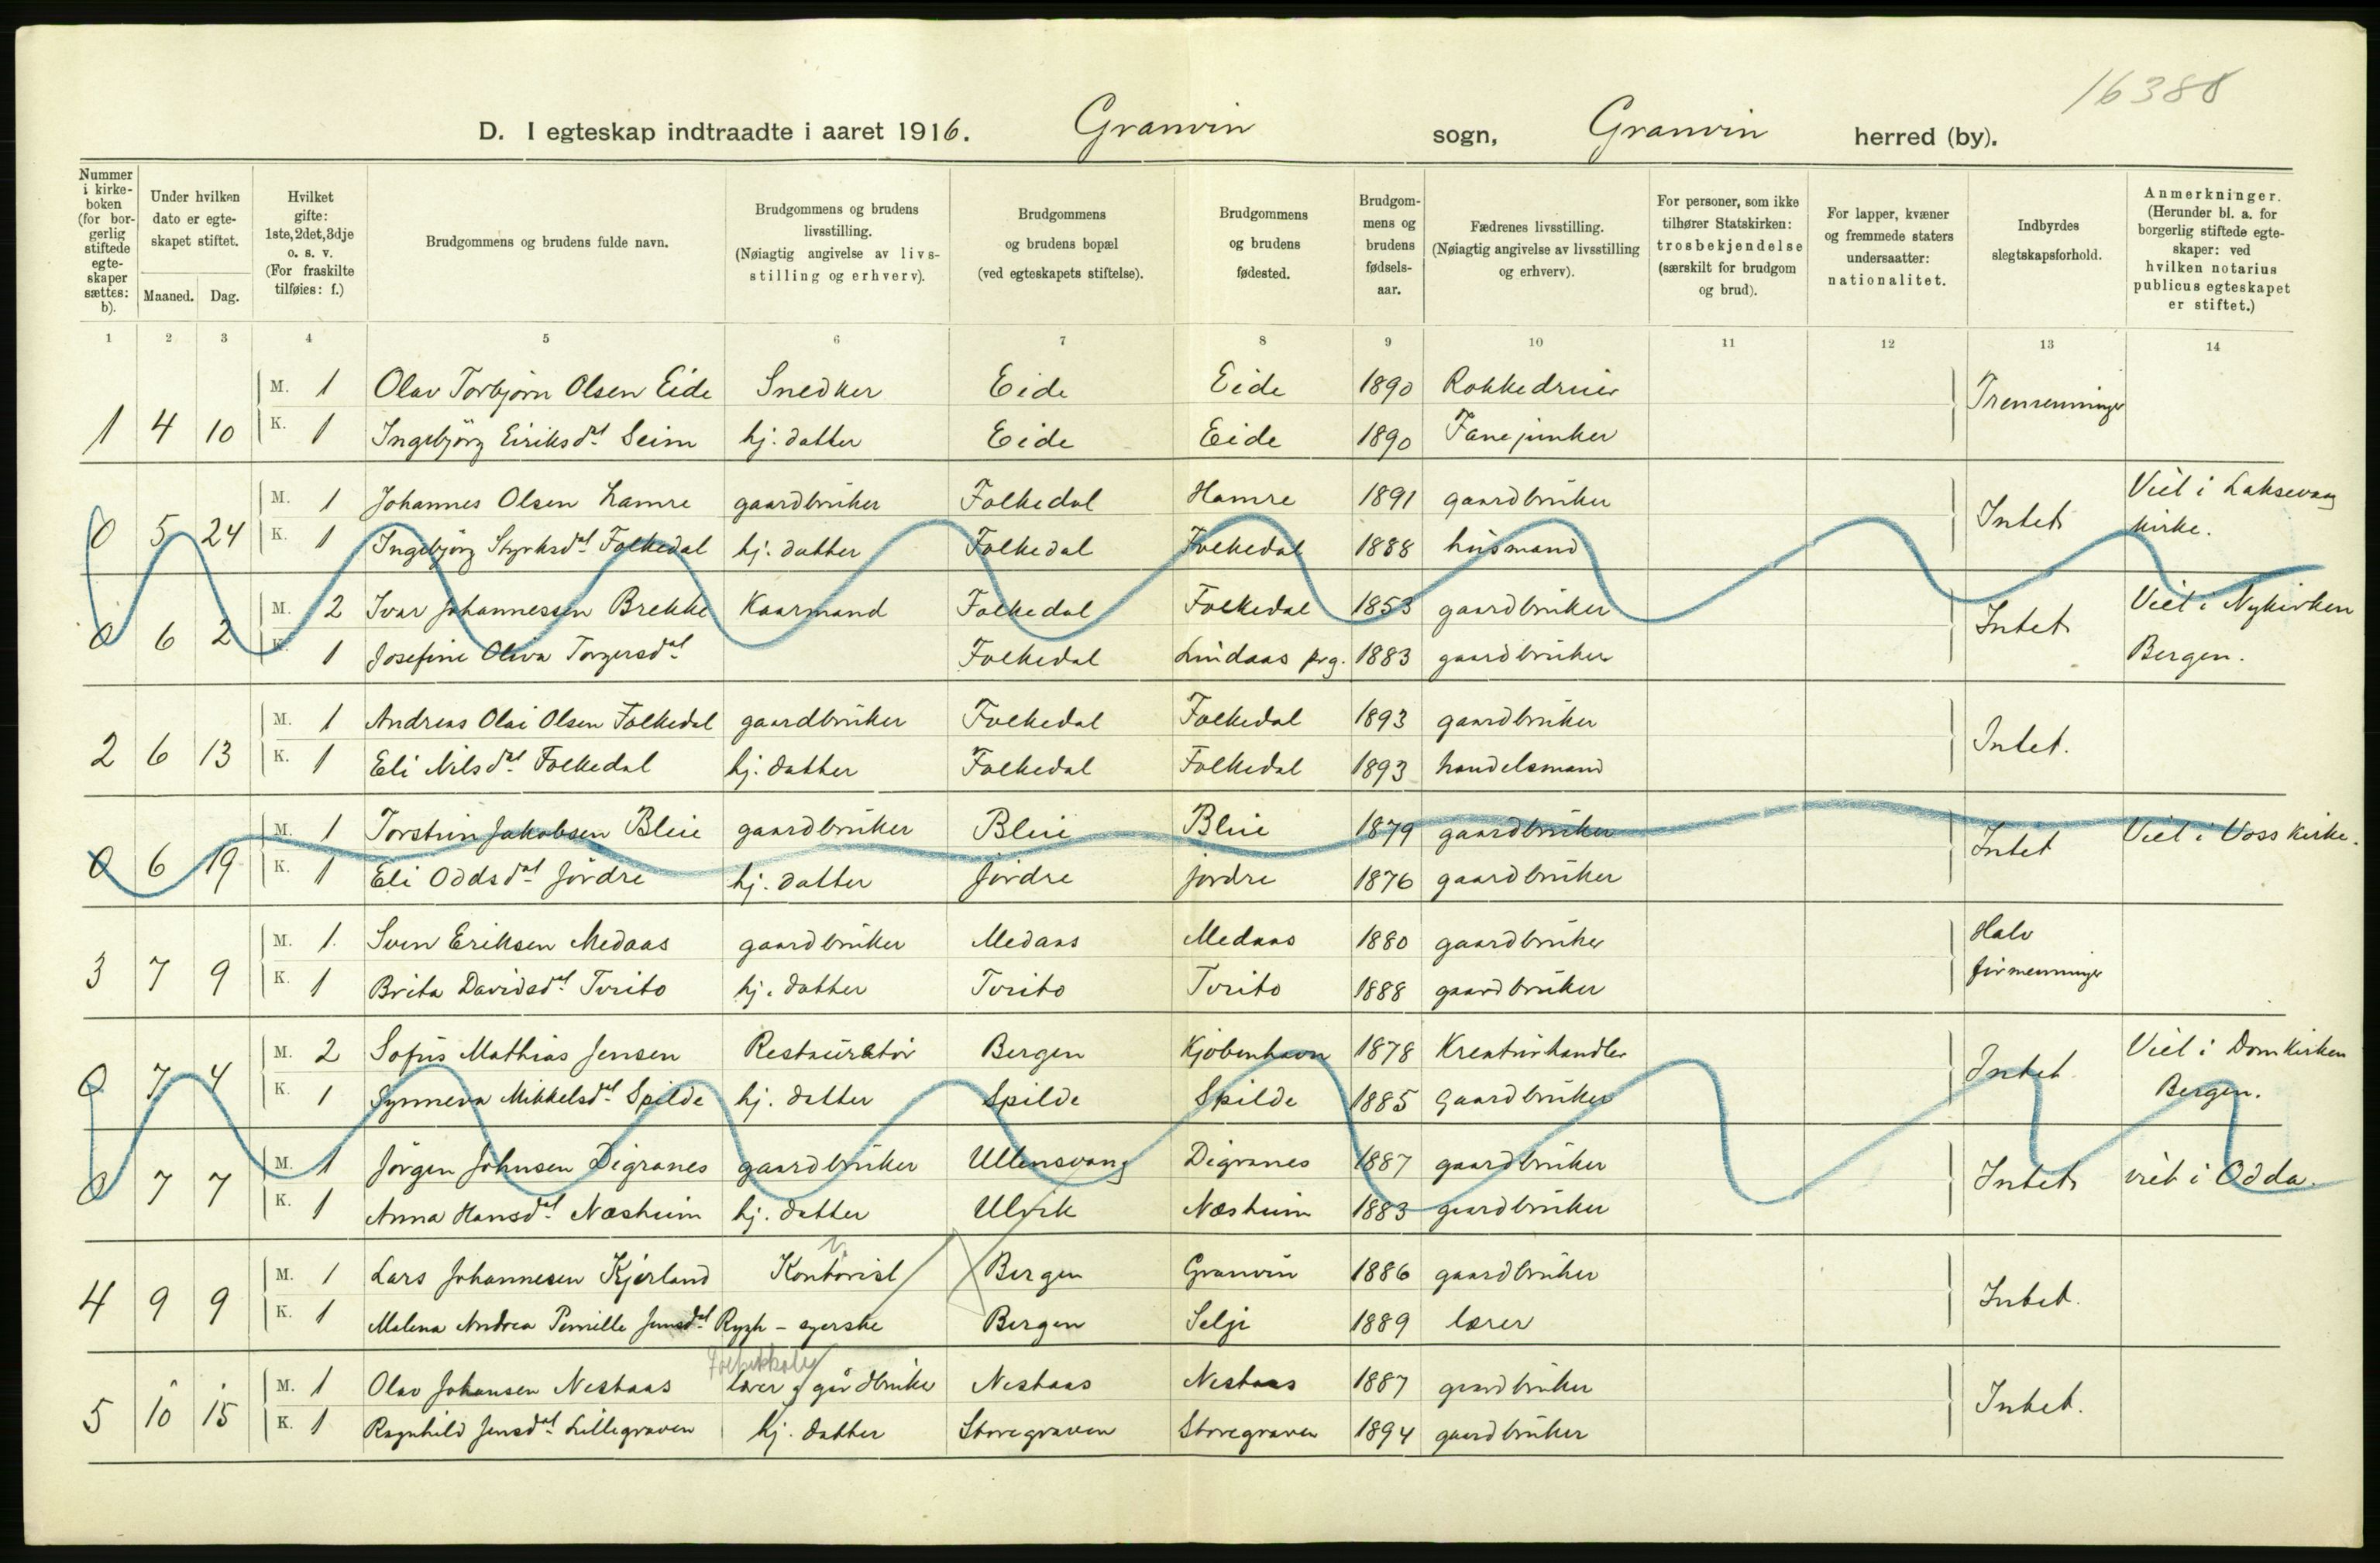 16388
D. I egteskap indtraadte i aaret 1916. Granvin sogn, Granvin herred (by).
Nummer i kirke-boken (for bor-gerlig stiftede egte-skaper sættes: b).
Under hvilken dato er egte-skapet stiftet.
Maaned. Dag.
Hvilket gifte: 1ste, 2det, 3dje o. s. v. (For fraskilte tilføies: f.)
Brudgommens og brudens fulde navn.
Brudgommens og brudens livsstilling. (Nøiagtig angivelse av livs-stilling og erhverv).
Brudgommens og brudens bopæl (ved egteskapets stiftelse).
Brudgommens og brudens fødested.
Brudgom-mens og brudens fødsels-aar.
Fædrenes livsstilling. (Nøiagtig angivelse av livsstilling og erhverv).
For personer, som ikke tilhører Statskirken: trosbekjendelse (særskilt for brudgom og brud).
For lapper, kvæner og fremmede staters undersaatter: nationalitet.
Indbyrdes slegtskapsforhold.
Anmerkninger. (Herunder bl. a. for borgerlig stiftede egte-skaper: ved hvilken notarius publicus egteskapet er stiftet.)
1 2 3 4 5 6 7 8 9 10 11 12 13 14
M. 1 Olav Torbjørn Olsen Eide Snedker Eide Eide 1890 Rokkedreier Tremenninger
1 4 10 K. 1 Ingebjörg Eiriksdat Seim hj. datter Eide Eide 1890 Fanejunker
M. 1 Johannes Olsen Hamre gaardbrüker Folkedal Hamre 1891 gaardbrüker Viet i Laksevaag
0 5 24 K. 1 Ingebjörg Styrksdat Folkedal hj. datter Folkedal Folkedal 1888 hüsmand Intet kirke.
M. 2 Ivar Johannessen Brekke Kaarmand Folkedal Folkedal 1853 gaardbrüker Viet i Nykirken
0 6 2 K. 1 Josefine Oliva Torgersdat Folkedal Lindaas prg. 1883 gaardbrüker Intet Bergen.
M. 1 Andreas Olai Olsen Folkedal gaardbrüker Folkedal Folkedal 1893 gaardbrüker
2 6 13 K. 1 Eli Nilsdat Folkedal hj. datter Folkedal Folkedal 1893 handelsmand Intet.
M. 1 Torstein Jakobsen Bleie gaardbrüker Bleie Bleie 1879 gaardbrüker Viet i Voss kirke.
0 6 19 K. 1 Eli Oddsdat Jördre hj. datter Jördre Jördre 1876 gaardbrüker Intet
M. 1 Sven Eriksen Medaas gaardbrüker Medaas Medaas 1880 gaardbrüker Halv
3 7 9 K. 1 Brita Davidsdat Tvito hj. datter Tvito Tvito 1888 gaardbrüker firmenninger
M. 2 Sofüs Mathias Jensen Restaüratör Bergen Kjöbenhavn 1878 Kreatürhandler Viet i Domkirken
0 7 4 K. 1 Synneva Mikkelsdat Spilde hj. datter Spilde Spilde 1885 Gaardbrüker Intet Bergen.
M. 1 Jörgen Johnsen Digranes gaardbrüker Ullensvang Digranes 1887 gaardbrüker viet i Odda.
0 7 7 K. 1 Anna Hansdat Næsheim hj. datter Ulvik Næsheim 1883 gaardbrüker Intet
M. 1 Lars Johannesen Kjerland Kontorist Bergen Granvin 1886 gaardbrüker
4 9 9 K. 1 Malena Andrea Pernille Jensdat Rygh - syerske Bergen Selje 1889 lærer Intet.
M. 1 Olav Johansen Nestaas lærer g gårdbruker Nestaas Nestaas 1887 gaardbrüker
5 10 15 K. 1 Ragnhild Jensdat Lillegraven hj. datter Storegraven Storegraven 1894 gaardbrüker Intet.